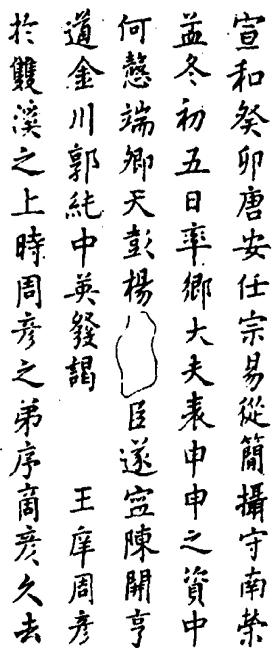 宣和癸卯唐安任宗易從簡攝守南榮
孟冬初五日率鄉大夫表申申之資中
何慤端卿天彭楊臣遂寍陳開亨
道金川郭純中英發謁 王庠周彥
於雙溪之上時周彥之弟序商彥久去